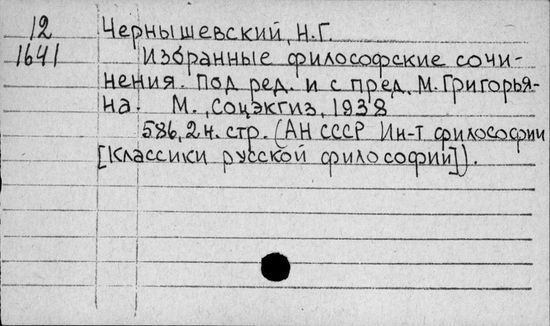 12 Чернышевский, Н.Г.
1641 Избранные философские сочи-
нения. Под ред. и с пред. М. Григорья-
на. М., Соцэкгиз, 1938
586, 2 н. стр. (АН СССР Ин-т философии
[Классики русской философии]).